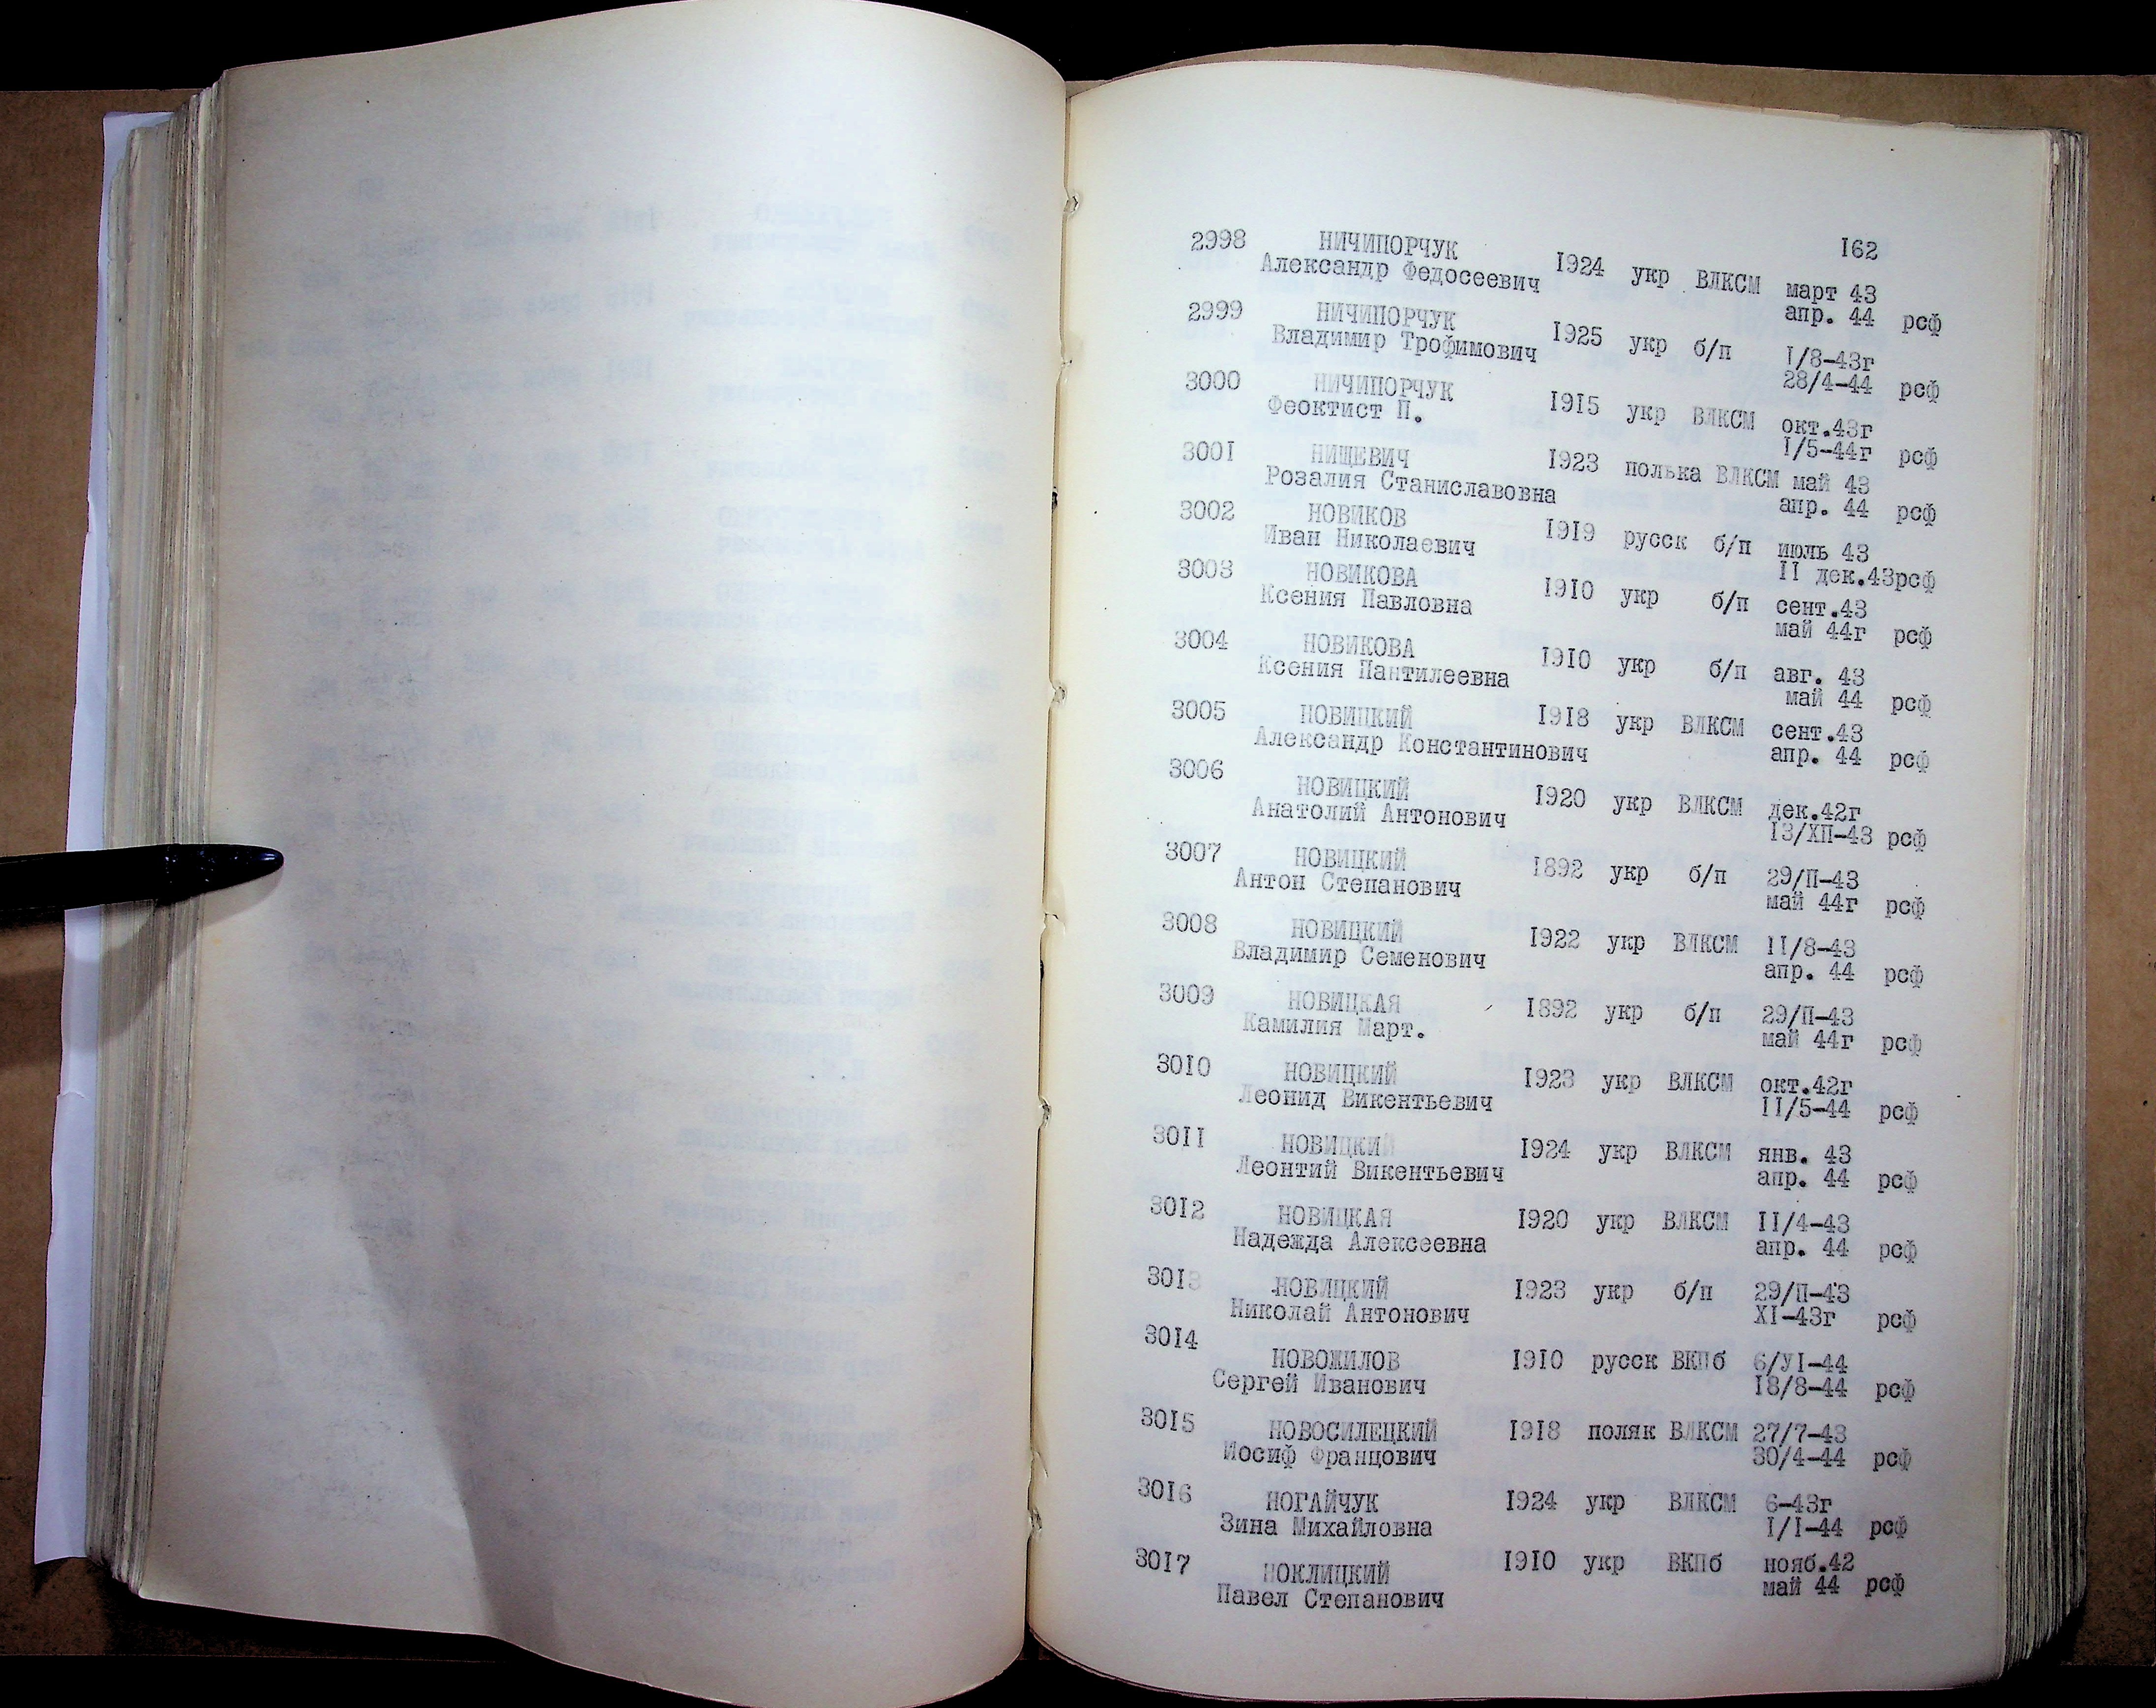 162
2998 НИЧИПОРЧУК
Александр Федосеевич 1924 укр ВЛКСМ март 43
апр. 44 рсф
2999 НИЧИПОРЧУК
Владимир Трофимович 1925 укр б/п I/8-43г
28/4-44 рсф
3000 НИЧИПОРЧУК
Феоктист П. 1915 укр ВЛКСМ окт.43г
I/5-44г рсф
3001 НИЩЕВИЧ 1923 полька ВЛКСМ май 43
Розалия Станиславовна апр. 44 рсф
3002 НОВИКОВ 1919 русск б/п июль 43
Иван Николаевич II дек.43рсф
3003 НОВИКОВА 1910 укр б/п сент.43
Ксения Павловна май 44г рсф
3004 НОВИКОВА 1910 укр б/п авг. 43
Ксения Пантилеевна май 44 рсф
3005 НОВИЦКИЙ 1918 укр ВЛКСМ сент.43
Александр Константинович апр. 44 рсф
3006 НОВИЦКИЙ 1920 укр ВЛКСМ дек.42г
Анатолий Антонович 13/ХП-43 рсф
3007 НОВИЦКИЙ 1892 укр б/п 29/П-43
Антон Степанович май 44г рсф
3008 НОВИЦКИЙ 1922 укр ВЛКСМ II/8-43
Владимир Семенович апр. 44 рсф
3009 НОВИЦКАЯ 1892 укр б/п 29/П-43
Камилия Март. май 44г рсф
3010 НОВИЦКИЙ 1923 укр ВЛКСМ окт.42г
Леонид Викентьевич II/5-44 рсф
3011 НОВИЦКИЙ 1924 укр ВЛКСМ янв. 43
Леонтий Викентьевич апр. 44 рсф
3012 НОВИЦКАЯ 1920 укр ВЛКСМ II/4-43
Надежда Алексеевна апр. 44 рсф
3013 НОВИЦКИЙ 1923 укр б/п 29/П-43
Николай Антонович XI-43г рсф
3014 НОВОЖИЛОВ 1910 русск ВКПб 6/УI-44
Сергей Иванович 18/8-44 рсф
3015 НОВОСИЛЕЦКИЙ 1918 поляк ВЛКСМ 27/7-43
Иосиф Францович 30/4-44 рсф
3016 НОГАЙЧУК 1924 укр ВЛКСМ 6-43г
Зина Михайловна I/I-44 рсф
3017 НОКЛИЦКИЙ 1910 укр ВКПб нояб.42
Павел Степанович май 44 рсф